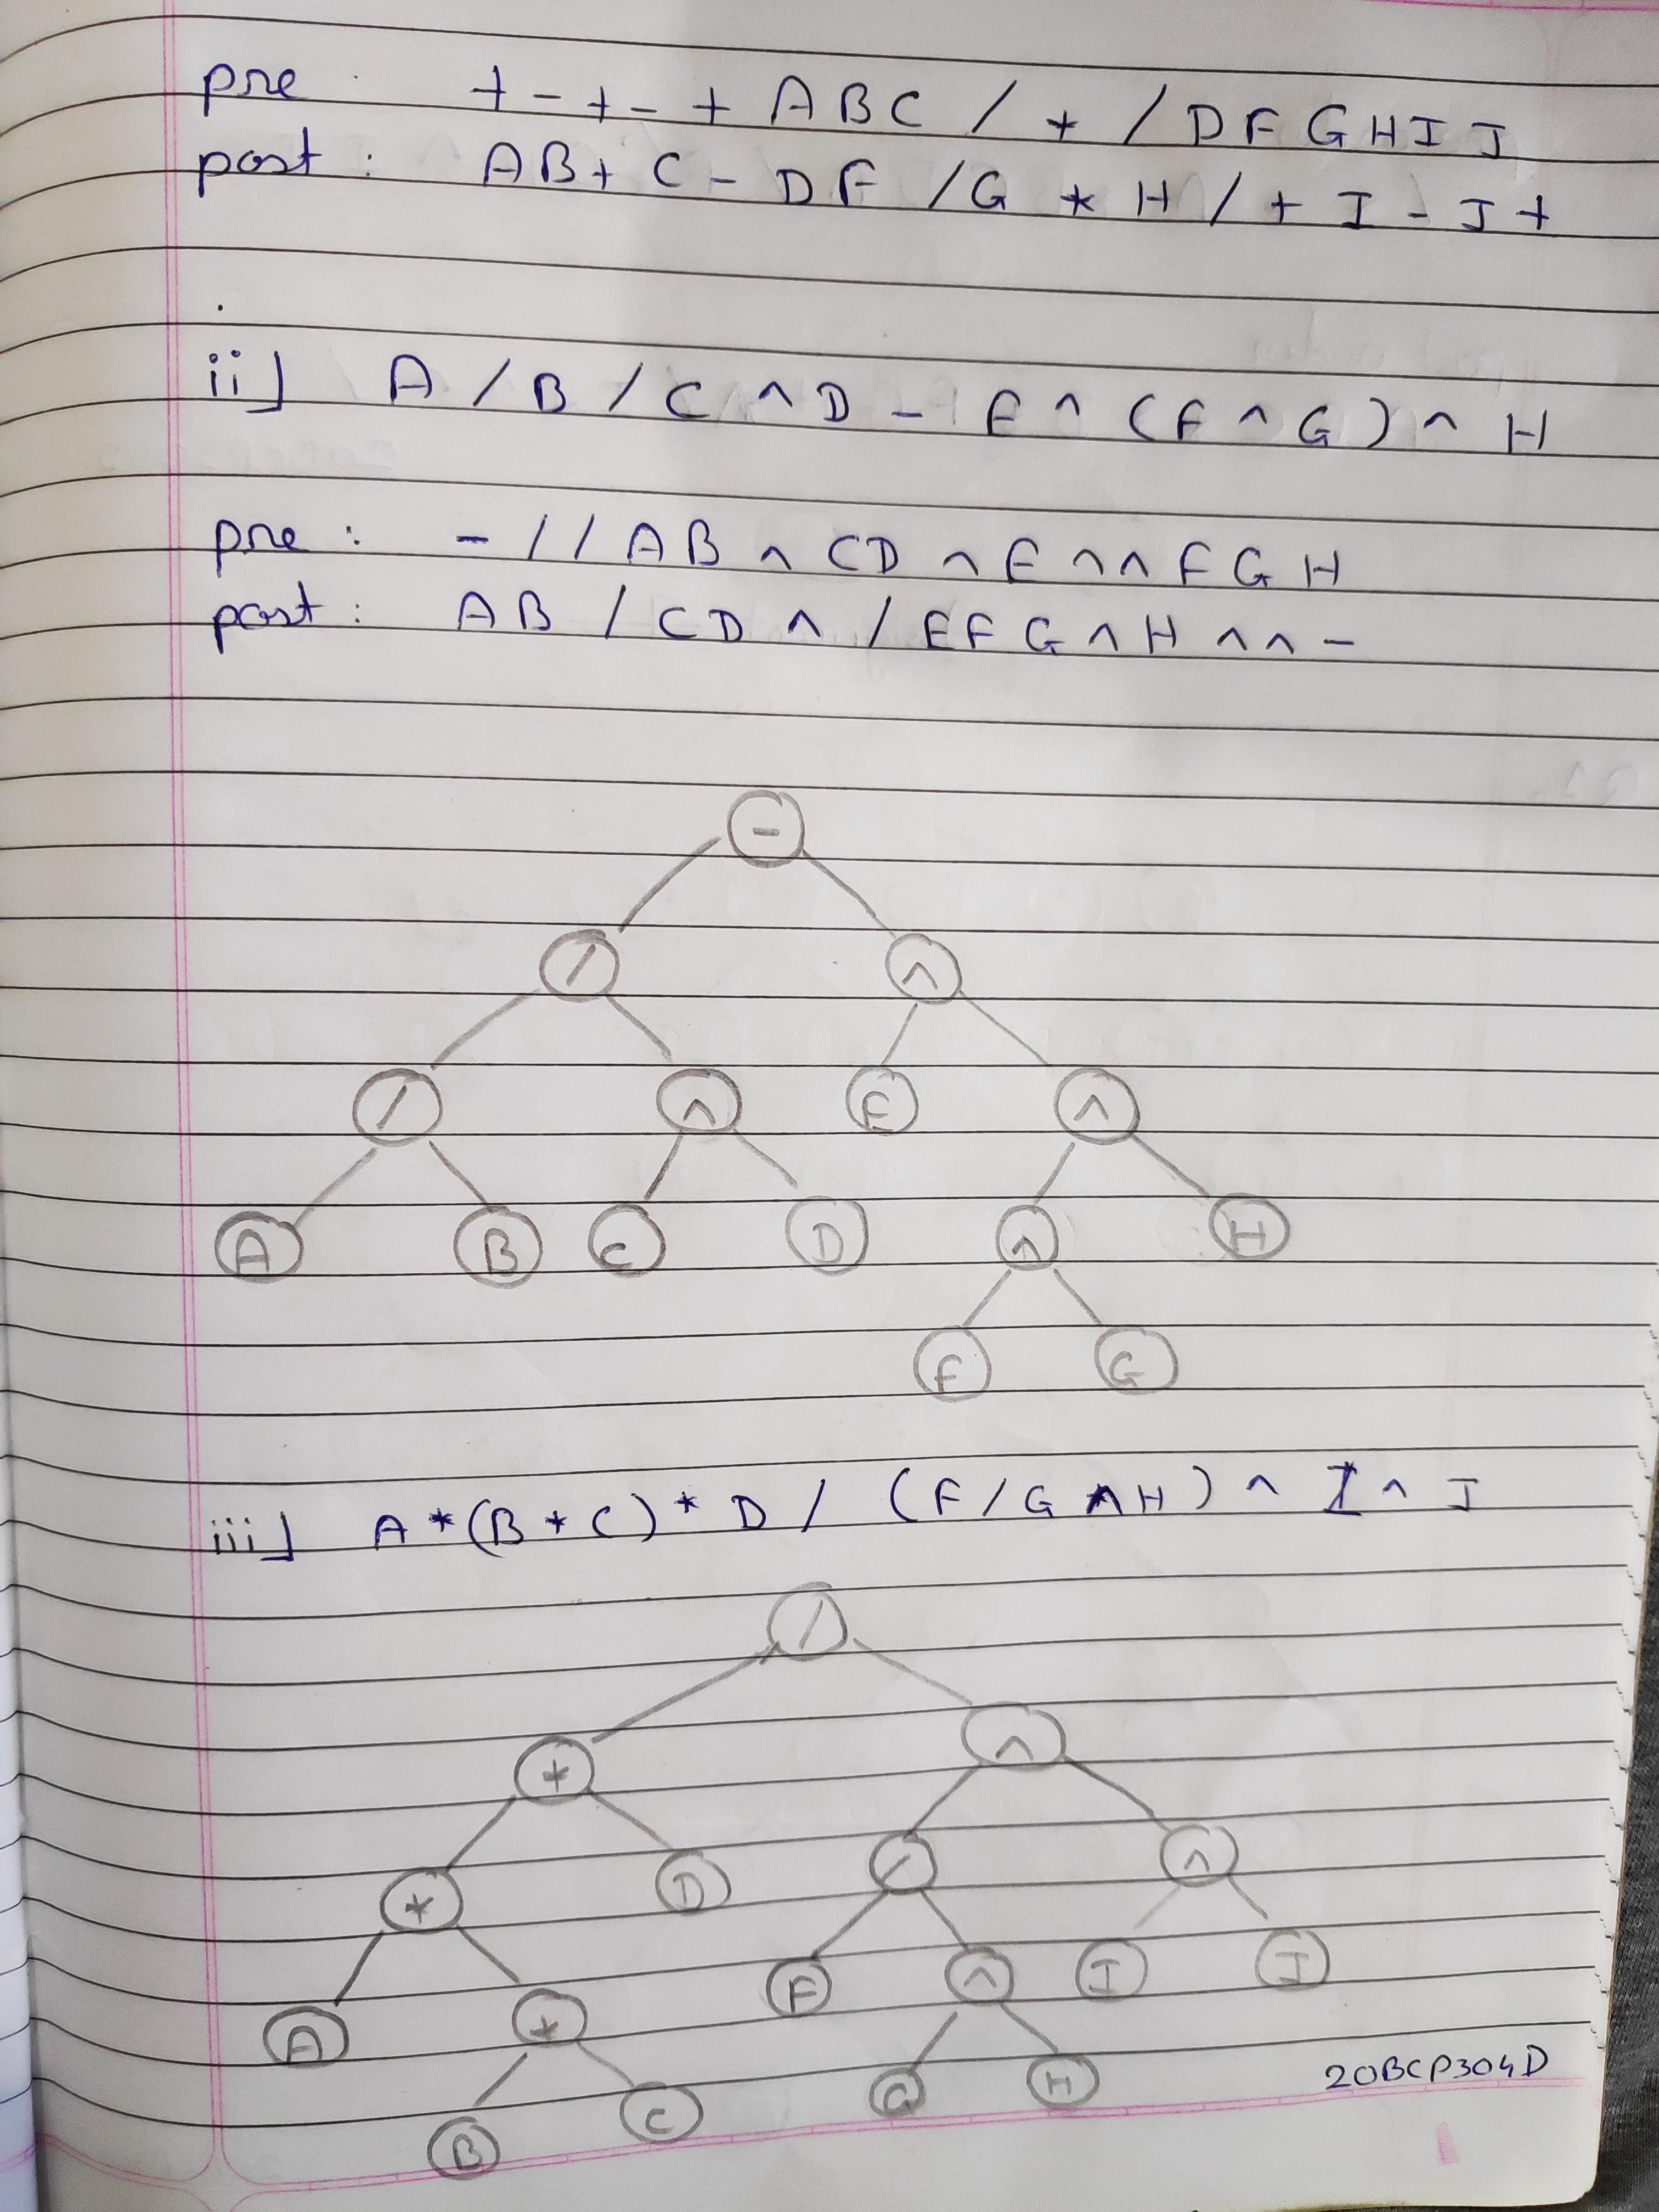 pre : + - + - + A B C / * / D F G H I J
post : A B + C - D F / G * H / + I - J +
ii] A / B / C ^ D - E ^ ( F ^ G ) ^ H
pre : - / / A B ^ C D ^ E ^ ^ F G H
post : A B / C D ^ / E F G ^ H ^ ^ -
-
/ ^
/ ^ E ^
A B C D ^ H
F G
iii] A * ( B * C ) * D / ( F / G ^ H ) ^ I ^ J
/
* ^
* D / ^
A * F ^ I J
B C G H
20BCP304D